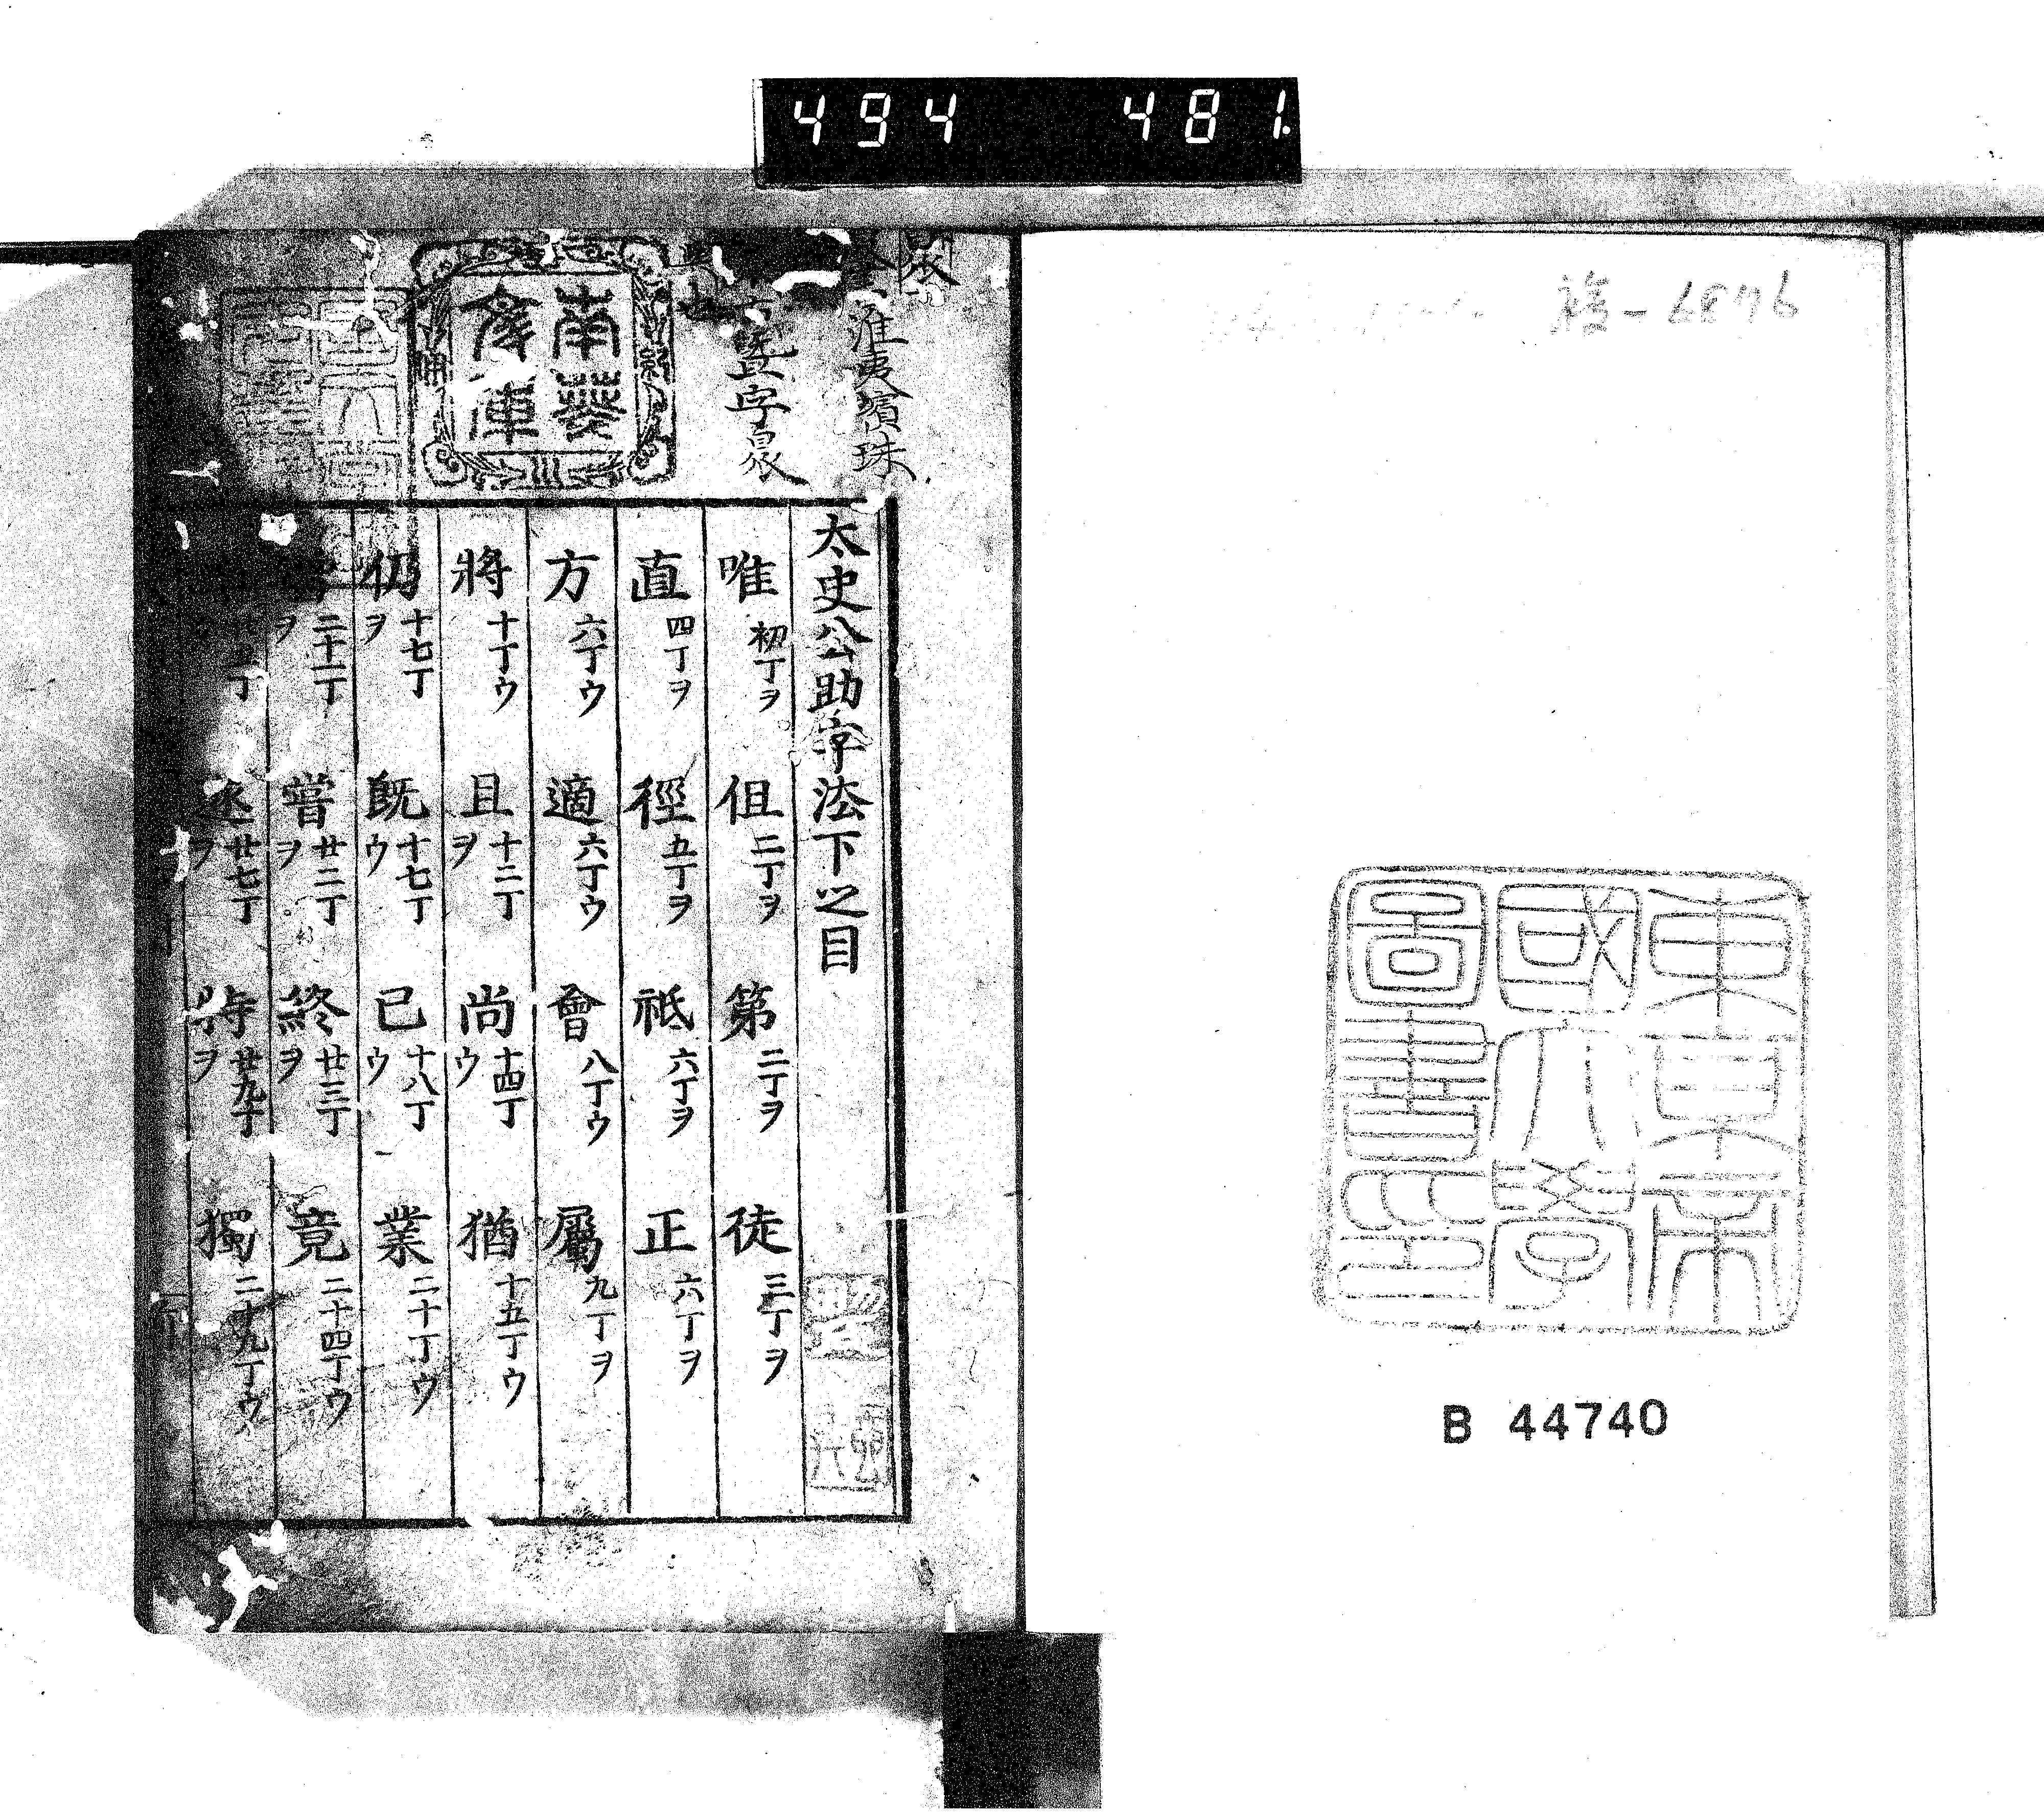 494 481.
B 44740
東京帝
國大學
圖書印
淮夷蠙珠
暨字泉
南葵
文庫
太史公助字法下之目
唯 初丁ヲ 但 二丁ヲ 第 二丁ヲ 徒 三丁ヲ
直 四丁ヲ 徑 五丁ヲ 祗 六丁ヲ 正 六丁ヲ
方 六丁ウ 適 六丁ウ 會 八丁ウ 屬 九丁ヲ
將 十丁ウ 且 十二丁ヲ 尚 十四丁ウ 猶 十五丁ウ
仍 十七丁ヲ 既 十七丁ウ 已 十八丁ウ 業 二十丁ウ
二十一丁ヲ 嘗 廿二丁ヲ 終 廿三丁ヲ 竟 二十四丁ウ
廿七丁ヲ 特 廿九丁ヲ 獨 二十九丁ウ